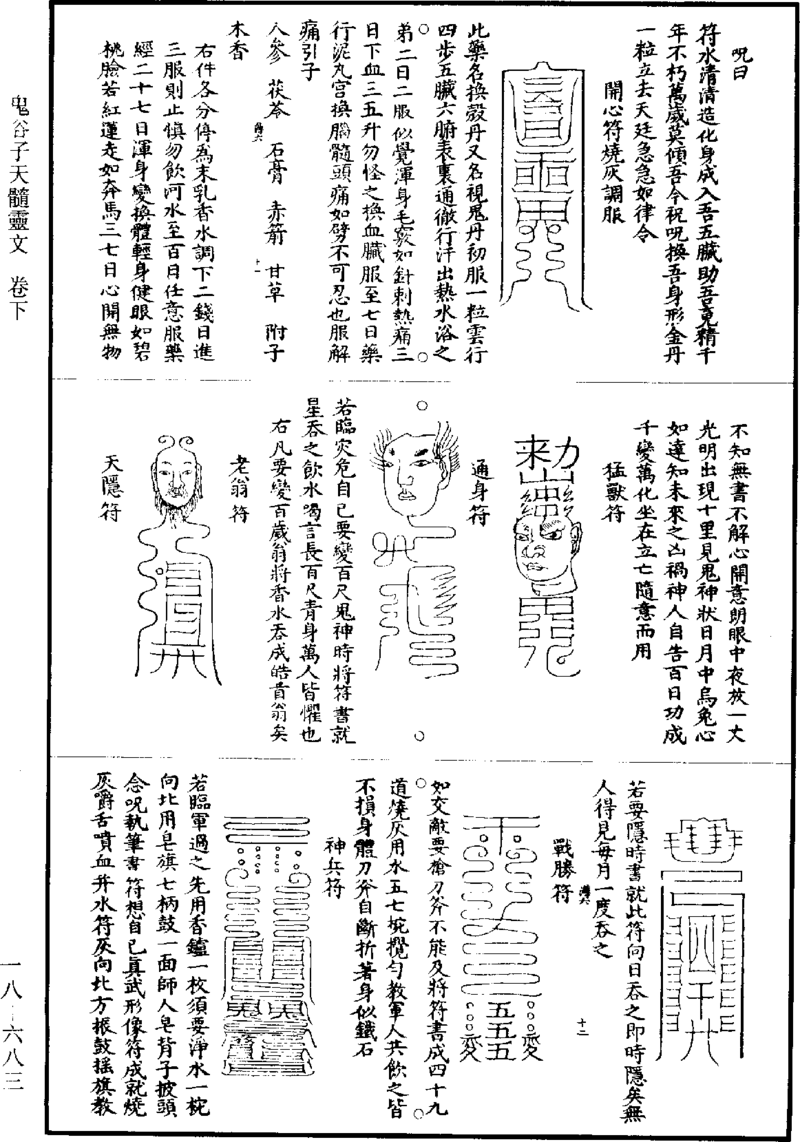 呪曰
符水清清造化身成入吾五臟助吾竟精千
年不朽萬歲莫傾吾今祝呪換吾身形金丹
一粒立去天廷急急如律令
開心符燒灰調服
此藥名換殼丹又名視鬼丹初服一粒雲行
四步五臟六腑表裏通徹行汗出熱水浴之
弟二日二服似覺渾身毛竅如針刺熱痛三
日下血三五升勿怪之換血臟服至七日藥
行泥丸宮換腦髓頭痛如劈不可忍也服解
痛引子
人參 茯苓 石膏 赤箭 甘草 附子
木香
右件各分停爲末乳香水調下二錢日進
三服則止慎勿飲河水至百日任意服藥
經二十七日渾身變換體輕身健眼如碧
桃臉若紅蓮走如奔馬三七日心開無物
不知無書不解心開意朗眼中夜放一丈
光明出現十里見鬼神狀日月中烏兔心
如達知未來之凶禍神人自告百日功成
千變萬化坐在立亡隨意而用
猛獸符
勅
通身符
若臨災危自已要變百尺鬼神時將符書就
星吞之飲水喝言長百尺青身萬人皆懼也
右凡要變百歲翁將香水吞成皓首翁矣
老翁符
天隱符
若要隱時書就此符向日吞之即時隱矣無
人得見每月一度吞之
戰勝符
十二
五五五
如交敵要槍刀斧不能及將符書成四十九
道燒灰用水五七椀攪勻教軍人共飲之皆
不損身體刀斧自斷折著身似鐵石
神兵符
若臨軍過之先用香鑪一枚須要淨水一椀
向北用皂旗七柄鼓一面師人皂背子披頭
念呪執筆書符想自已真武形像符成就燒
灰嚼舌噴血并水符灰向北方振鼓搖旗教
鬼谷子天髓靈文 卷下
一八－六八三